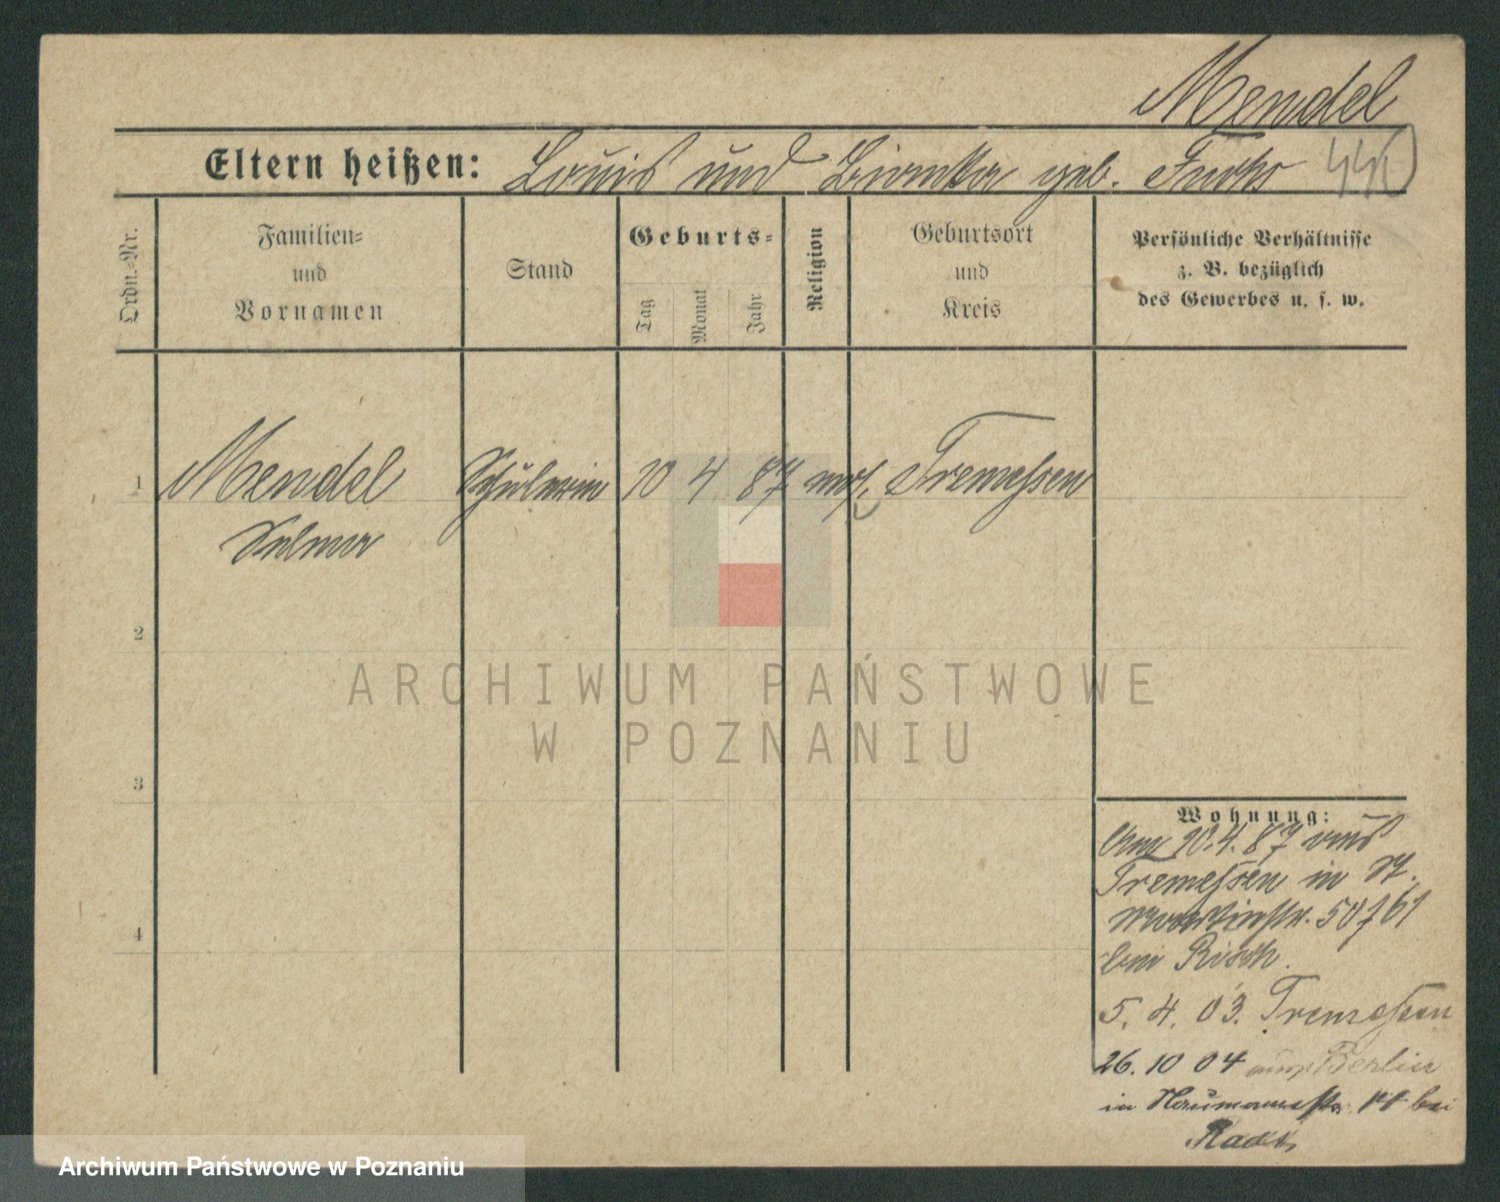 Mendel
Eltern heißen: Louis und Bianka geb. Fuchs
Ordn.-Nr.
Familien-
und
Vornamen
Stand
Geburts-
Tag
Monat
Jahr
Religion
Geburtsort
und
Kreis
Persönliche Verhältnisse
z. B. bezüglich
des Gewerbes u. s. w.
1 Mendel Schülerin 10 4 87 mos. Tremessen
Selma
2
3
4
Wohnung:
Am 10.4.87 aus
Tremessen in St.
Martinstr. 50/61
bei Risch.
5. 4. 03. Tremessen
26. 10 04 Berlin
in Naumannstr. bei
ARCHIWUM PAŃSTWOWE
W POZNANIU
Archiwum Państwowe w Poznaniu